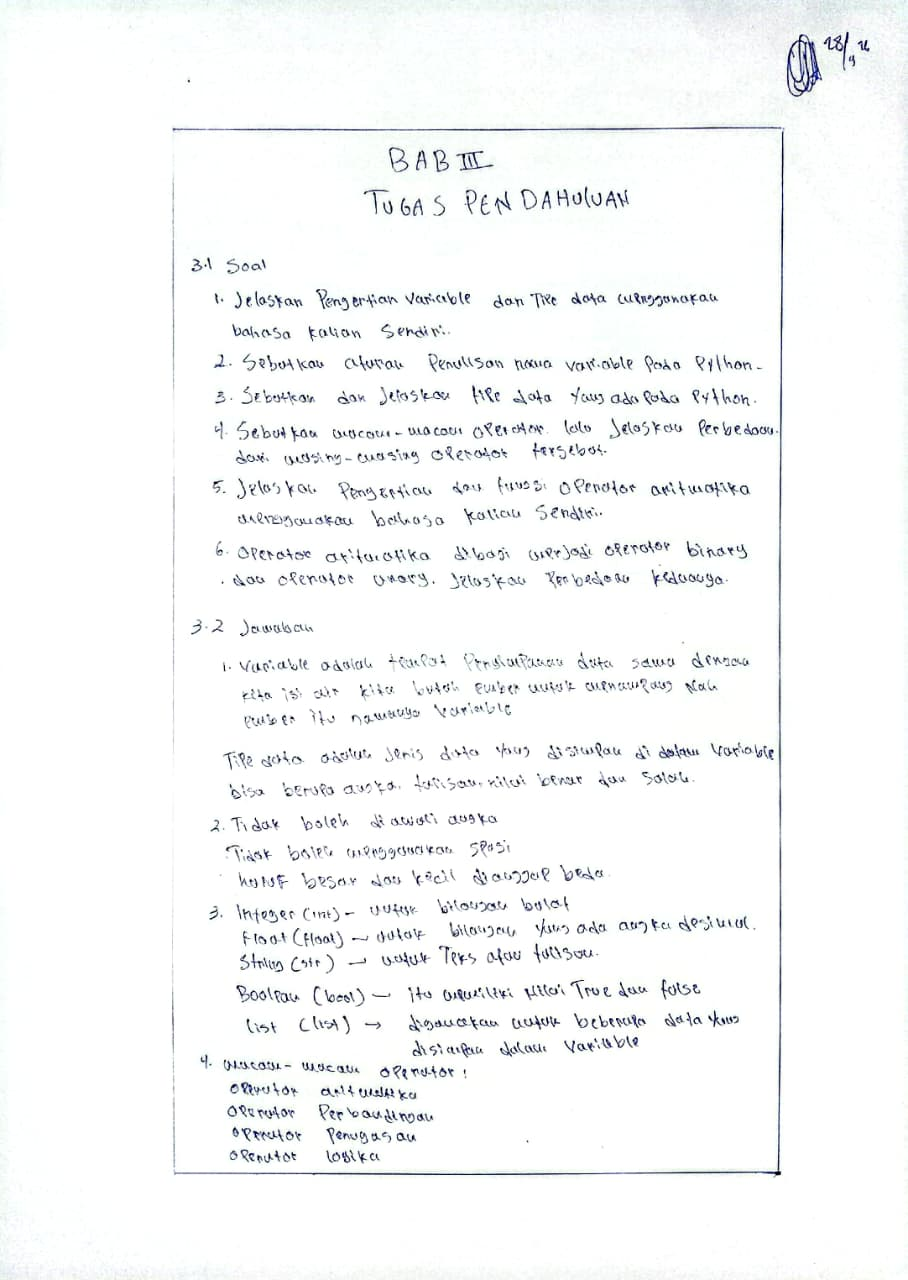 28/4 26
BAB III
TUGAS PENDAHULUAN
3.1 Soal
1. Jelaskan Pengertian Variable dan Tipe data menggunakan
bahasa kalian Sendiri.
2. Sebutkan aturan Penulisan nama variable pada Python.
3. Sebutkan dan Jelaskan tipe data yang ada pada Python.
4. Sebutkan macam-macam operator lalu Jelaskan Perbedaan
dari masing-masing operator tersebut.
5. Jelaskan Pengertian dan fungsi operator aritmatika
menggunakan bahasa kalian Sendiri.
6. Operator aritmatika dibagi menjadi operator binary
dan operator unary. Jelaskan Perbedaan keduanya.
3.2 Jawaban
1. Variable adalah tempat Penyimpanan data sama dengan
kita isi air kita butuh ember untuk menampung Nah
ember itu namanya Variable
Tipe data adalah Jenis data yang disimpan di dalam Variable
bisa berupa angka, tulisan, nilai benar dan Salah.
2. Tidak boleh diawali angka
Tidak boleh menggunakan spasi
huruf besar dan kecil dianggap beda.
3. Integer (int) - untuk bilangan bulat
Float (float) - untuk bilangan yang ada angka desimal.
String (str) → untuk Teks atau tulisan.
Boolean (bool) - itu memiliki Nilai True dan false
list (list) → digunakan untuk beberapa data yang
disimpan dalam Variable
4. macam-macam operator:
Operator aritmatika
Operator Perbandingan
Operator Penugasan
Operator logika